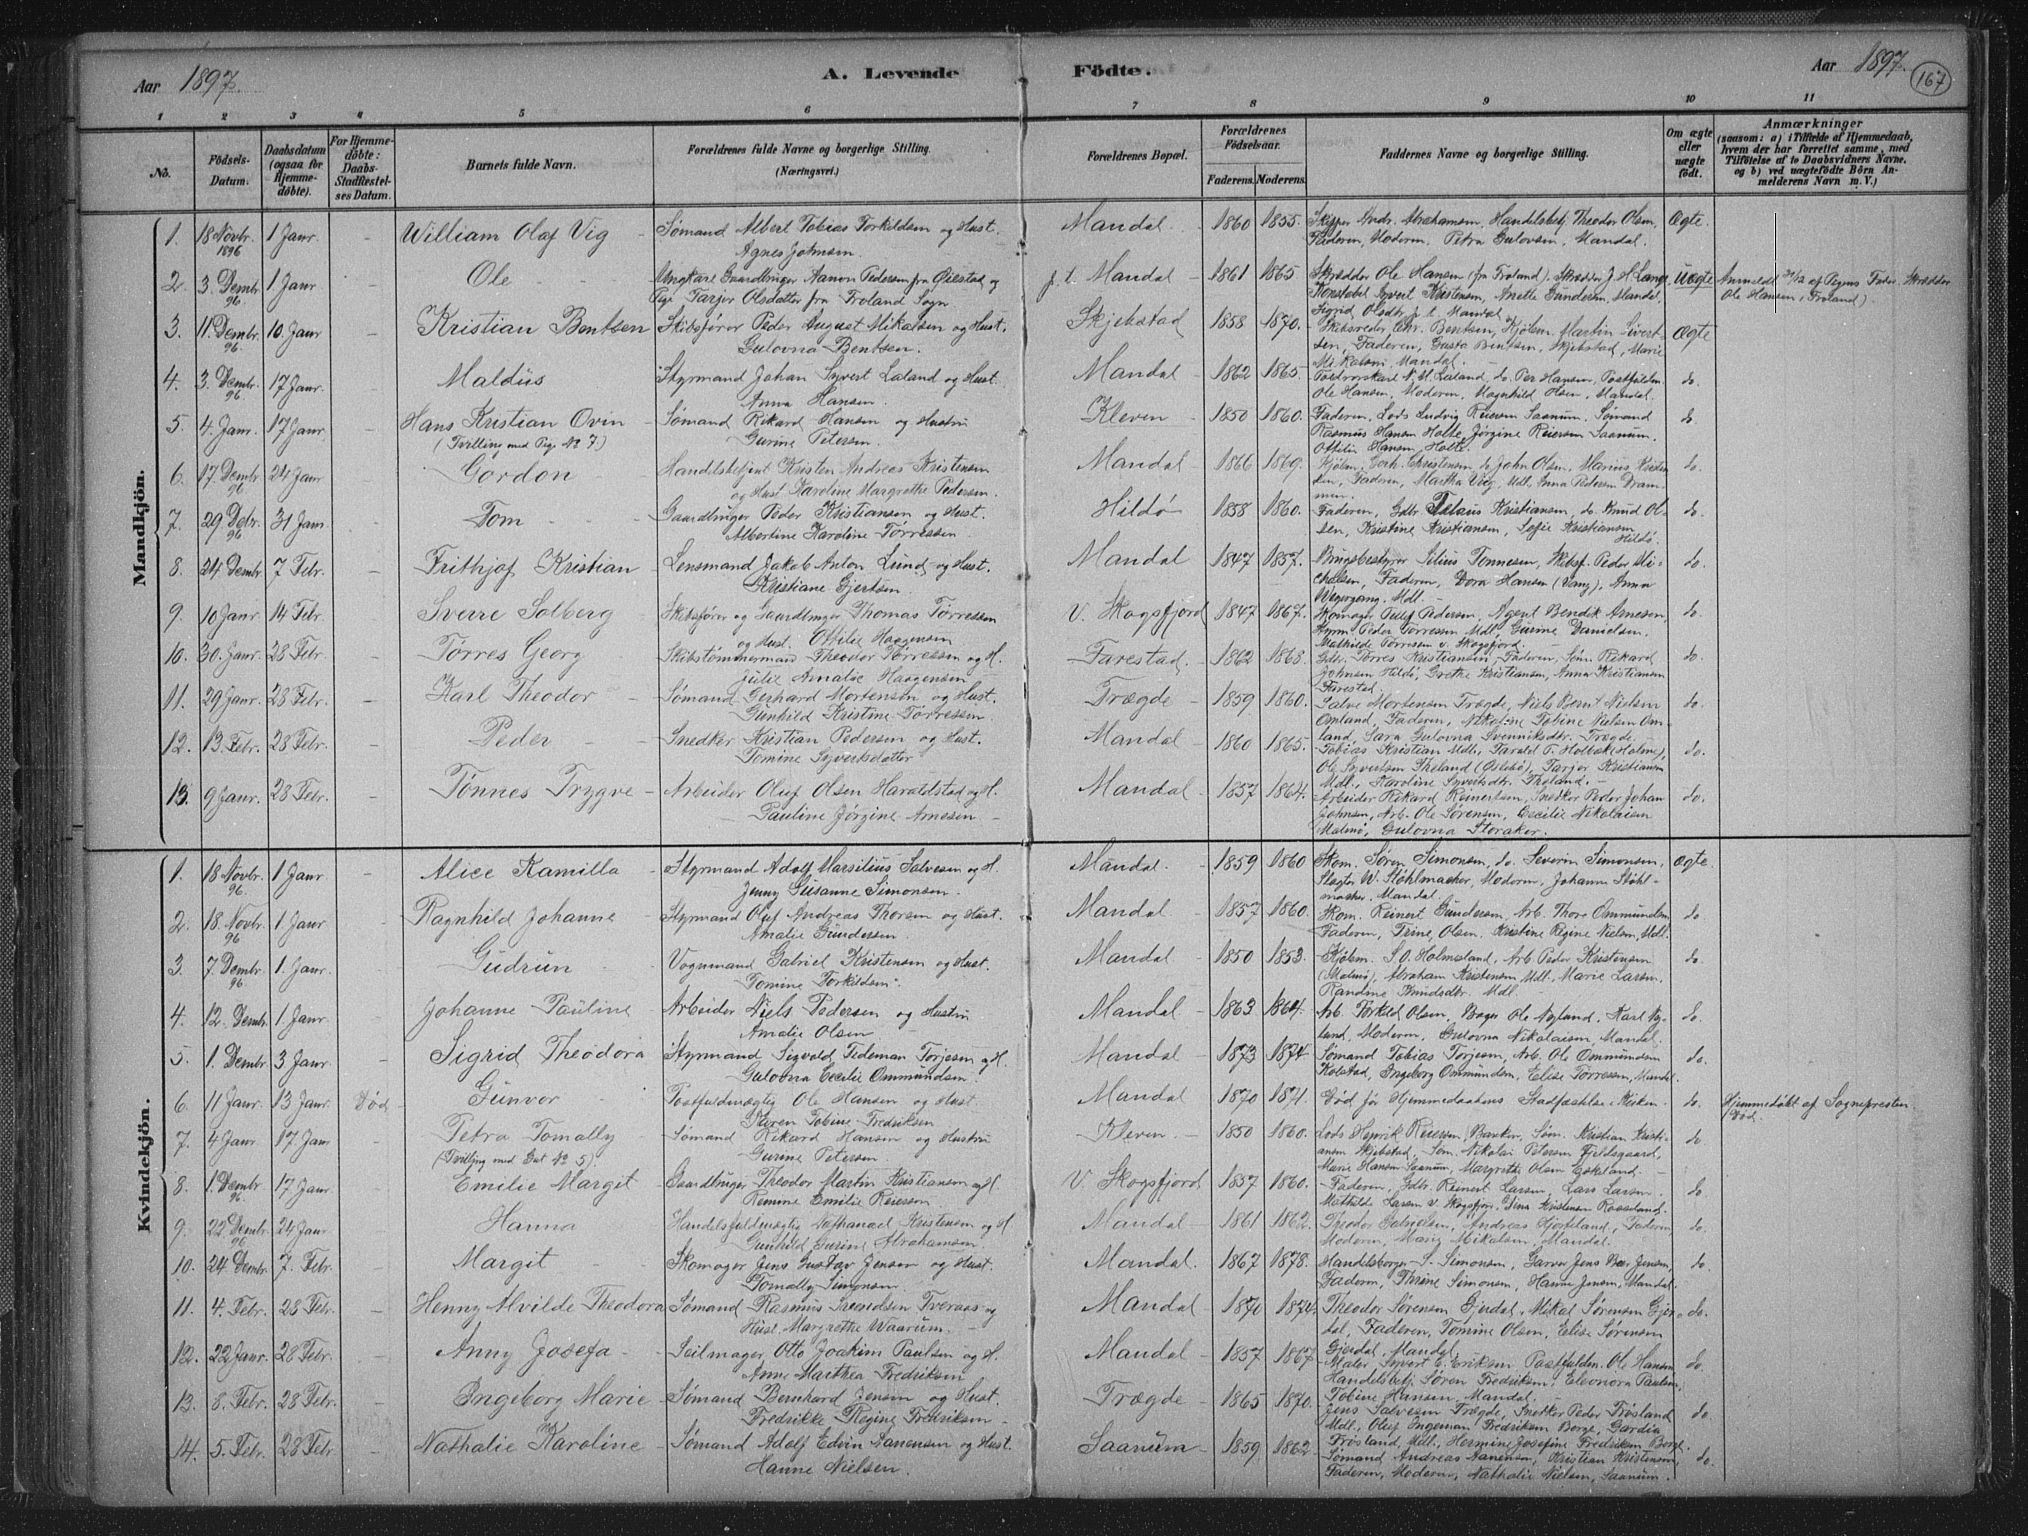 Aar 1897. A. Levende Födte. Aar 1897. 167
1 2 3 4 5 6 7 8 9 10 11
No.
Födsels-Datum.
Daabsdatum (ogsaa for Hjemmedöbte).
For Hjemmedöbte: Daabs-Stadfæstelses Datum.
Barnets fulde Navn.
Forældrenes fulde Navne og borgerlige Stilling. (Næringsvei.)
Forældrenes Bopæl.
Forældrenes Födselsaar. Faderens. Moderens.
Faddernes Navne og borgerlige Stilling.
Om ægte eller uægte födt.
Anmærkninger (saasom: a) i Tilfælde af Hjemmedaab, hvem der har forrettet samme, med Tilföielse af to Daabsvidners Navne, og b) ved uægtefödte Börn Anmelderens Navn m. V.)
Mandkjön.
1. 18 Novbr. 1896 1 Janr. - William Olaf Vig - Sømand Albert Tobias Torkildsen og Hust. Mandal. 1860 1855. Skipper Andr. Abrahamsen, Handelsbetj. Theodor Olsen, Ægte.
Agnes Johnsen. Faderen, Moderen, Petra Gulovsen, Mandal.
2. 3. Dembr. 96 1 Janr - Ole - Ungkarl Gaardbruger Aanon Pedersen fra Øiestad og p. t. Mandal - 1861 1865 Skrædder Ole Hansen (fra Froland), Skrædder J. H. Lange Uægte Anmeldt 31/12 af Pigens Fader Skrædder
Pige Tarjer Olsdatter fra Froland Sogn. Konstabel Syvert Kristensen, Anette Gundersen, Mandal, Ole Hansen, Froland).
Sigrid Olsdtr p. t. Mandal
3. 11. Dembr. 96 10. Janr - Kristian Bentsen Skibsfører Peder August Mikalsen og Hust. Skjebstad 1858 1870. Skibsreder Chr. Bentsen, Kjøbm. Martin Sivert- Ægte
Gulovna Bentsen. sen, Faderen, Gusta Bentsen, Skjebstad, Marie
Mikalsen, Mandal.
4. 3. Dembr. 96 17 Janr. - Maldus Styrmand Johan Syvert Laland og Hust. Mandal - 1862 1865 do.
Anna Hansen. Ole Hansen, Moderen, Magnhild Olsen, Mandal.
5. 4. Janr. 17 Janr. - Hans Kristian Ovin Sømand Rikard Hansen og Hustru Kleven - 1850 1860. Faderen, Lods Ludvig Reiersen Saanum, Sømand do
(Tvilling med Pige No 7.) Gurine Petersen. Rasmus Hansen Holte, Jørgine Reiersen Saanum.
Ottilie Hansen Holte.
6. 17. Dembr. 96 24 Janr - Gordon - Handelsbetjent Kristen Andreas Kristensen Mandal - 1866 1869. Kjøbm. Corn. Christensen, do John Olsen, Marius Kristen do.
og Hust. Karoline Margrethe Pedersen. sen, Faderen, Martha Vig, Mdl. Anna Pedersen Drammen.
7. 29 Debr. 96 31 Janr - Tom - Gaardbruger Peder Kristiansen og Hust. Hildø 1858 1860. Faderen, Gdbr. Kristiansen, do Knud Ol- do.
Albertine Karoline Tørressen. sen, Kristine Kristiansen, Sofie Kristiansen Hildø.
8. 24 Dembr. 7 Febr. - Frithjof Kristian Lensmand Jakob Anton Lund og Hust. Mandal 1847 1857. Brugsbestyrer Tønnesen, Skibsf. Peder Mi- do.
Kristiane Gjertsen. chelsen, Faderen, Dora Hansen (Vang), Anna
Mdl.
9. 10 Janr. 14 Febr. - Sverre Solberg Skibsfører og Gaardbruger Thomas Tørressen V. Skogsfjord 1847 1867. Skomager Pedersen, Agent Bendik Arnesen do.
og Hust. Ottilie Haagensen Styrm. Peder Tørressen Mdl., Gurine Danielsen,
Mathilde Tørresen v. Skogsfjord.
10. 30. Janr. 28 Febr. - Tørres Georg Skibstømmermand Theodor Tørressen og H. Farestad. 1862 1868. Gdbr. Tørres Kristiansen, Faderen, Søm. Rikard do.
Julie Amalie Haagensen Johnsen Hildø, Grethe Kristiansen, Anna Kristiansen
Farestad.
11. 29 Janr. 28 Febr. - Karl Theodor - Sømand Gerhard Mortensen og Hust. Trægde - 1859 1860. Salve Mortensen Trægde, Niels Bernt Nielsen do.
Gunhild Kristine Tørressen. Omland, Faderen, Tobine Nielsen Om-
land, Sara Gulovna Svenniksdtr. Trægde.
12. 13. Febr. 28 Febr. - Peder Snedker Kristian Pedersen og Hust. Mandal - 1860 1865. Tobias Kristian Mdl., Harald T. Holbæk (Holme), do.
Tomine Syvertsdatter Ole Syvertsen Theland, Tarjer Kristiansen
Mdl., Karoline Syvertsdtr. Theland.
13. 9 Janr. 28 Febr. - Tønnes Trygve - Arbeider Oluf Olsen Haraldstad og H. Mandal 1857 1864. Arbeider Rikard Reinertsen, Snedker Peder Johan do.
Pauline Jørgine Arnesen Johnsen, Arb. Ole Sørensen, Cecilie Nikolaisen
Malmø, Gulovna Storaker.
Kvindekjön.
1. 18 Novbr. 96. 1 Janr - Alice Kamilla Styrmand Adolf Marsilius Salvesen og H. Mandal. 1859 1860 Skom. Søren Simonsen, do. Severin Simonsen, Ægte.
Jenny Susanne Simonsen. Slagter W. Støhlmacher, Moderen, Johanne Støhl-
macher, Mandal.
2. 18. Novbr. 96 1 Janr - Ragnhild Johanne Styrmand Oluf Andreas Thorsen og Hust. Mandal - 1857 1860. Skom. Reinert Gundersen, Arb. Thore Ommundsen, do.
Amalie Gundersen Faderen, Trine Olsen, Kristine Regine Nielsen, Mdl.
3. 7. Dembr. 96 1 Janr - Gudrun - Vognmand Gabriel Kristensen og Hust. Mandal - 1850 1853. Kjøbm. S. O. Holmesland, Arb. Peder Kristensen do.
Tomine Torkildsen. (Malmø), Abraham Kristensen Mdl., Marie Larsen,
Randine Knudsdtr. Mdl.
4. 12. Dembr. 1 Janr - Johanne Pauline Arbeider Niels Pedersen og Hustru Mandal - 1863 1864. Arb. Torkild Olsen, Bager Ole Nyland, Karl Ny- do.
Amalie Olsen land, Moderen, Gulovna Nikolaisen, Mandal.
5. 1. Dembr. 3 Janr - Sigrid Theodora Styrmand Sigvald Tideman Torjesen og H. Mandal 1873 1874. Sømand Tobias Torjesen, Arb. Ole Ommundsen do.
Gulovna Cecilie Ommundsen. Kolstad, Ingeborg Ommundsen, Elise Tørressen, Mandal.
6. 11 Janr. 13 Janr. Død - Gunvor - Postfuldmægtig Ole Hansen og Hust. Mandal - 1870 1871. Død før Hjemmedaabens Stadfæstelse i Kirken. do. Hjemmedøbt af Sognepresten.
Karen Tobine Fredriksen Død.
7. 4 Janr. 17 Janr. - Petra Tomally - Sømand Rikard Hansen og Hustru Kleven. - 1850 1860. Lods Henrik Reiersen, Søm. Kristian Kristi- do.
(Tvilling med Gut No 5). Gurine Petersen. ansen Skjebstad, Søm. Nikolai Petersen Fieldsgaard,
Marie Hansen Saanum, Margrethe Olsen Eskeland.
8. 1. Dembr. 96 17 Janr. - Emilie Margit - Gaardbruger Theodor Martin Kristiansen og H. V. Skogsfjord 1857 1860. Faderen, Gdbr. Reinert Larsen, Lars Larsen, do.
Remine Emilie Reiersen Mathilde Larsen v. Skogsfjord, Kristensen
9. 22 Dembr. 96 24 Janr - Hanna Handelsfuldmægtig Nathanael Kristensen og H. Mandal - 1861 1862. Theodor Gabrielsen, Andreas Hjorteland, Faderen, do.
Gunhild Gurine Abrahamsen. Moderen, Marie Mikalsen, Mandal.
10. 24 Dembr. 7. Febr. - Margit - Skomager Jens Gustav Jensen og Hust. Mandal - 1867 1878. Handelsborger S. Simonsen, Garver Jens Jensen, do.
Tomally Simonsen. Faderen, Thrine Simonsen, Hanne Jensen, Mandal.
11. 4. Febr. 28 Febr. - Henny Alvilde Theodora Sømand Rasmus Tveraas og Mandal - 1870 1874. Theodor Sørensen Gjerdal, Mikal Sørensen Gjer- do.
Hust. Margrethe Waarum. - dal, Faderen, Tomine Olsen, Elise Sørensen
Gjerdal, Mandal.
12. 22 Janr. 28 Febr. - Anny Josefa - Seilmager Otto Joakim Paulsen og H. Mandal - 1857 1867. Maler Syvert E. Eriksen, Postfuldm. Ole Hansen do.
Anne Marthea Fredriksen Handelsbetj. Søren Fredriksen, Eleonora Paulsen,
Tobine Hansen, Mandal.
13. 8. Febr. 28 Febr. - Ingeborg Marie Sømand Bernhard Jensen og Hust. Trægde - 1865 1870. Jens Salvesen Trægde, Snedker Peder Frøsland do.
Fredrikke Regine Fredriksen - Mdl., Oluf Ingeman Fredriksen Borge, Gardia
Frøsland, Mdl., Hermine Josefine Fredriksen Borge.
14. 5. Febr. 28 Febr. - Nathalie Karoline Sømand Adolf Edvin Aanensen og Hust. Saanum - 1859 1862. Sømand Andreas Aanensen, Kristian Kristensen, do.
Hanne Nielsen. Faderen, Moderen, Nathalie Nielsen, Saanum.